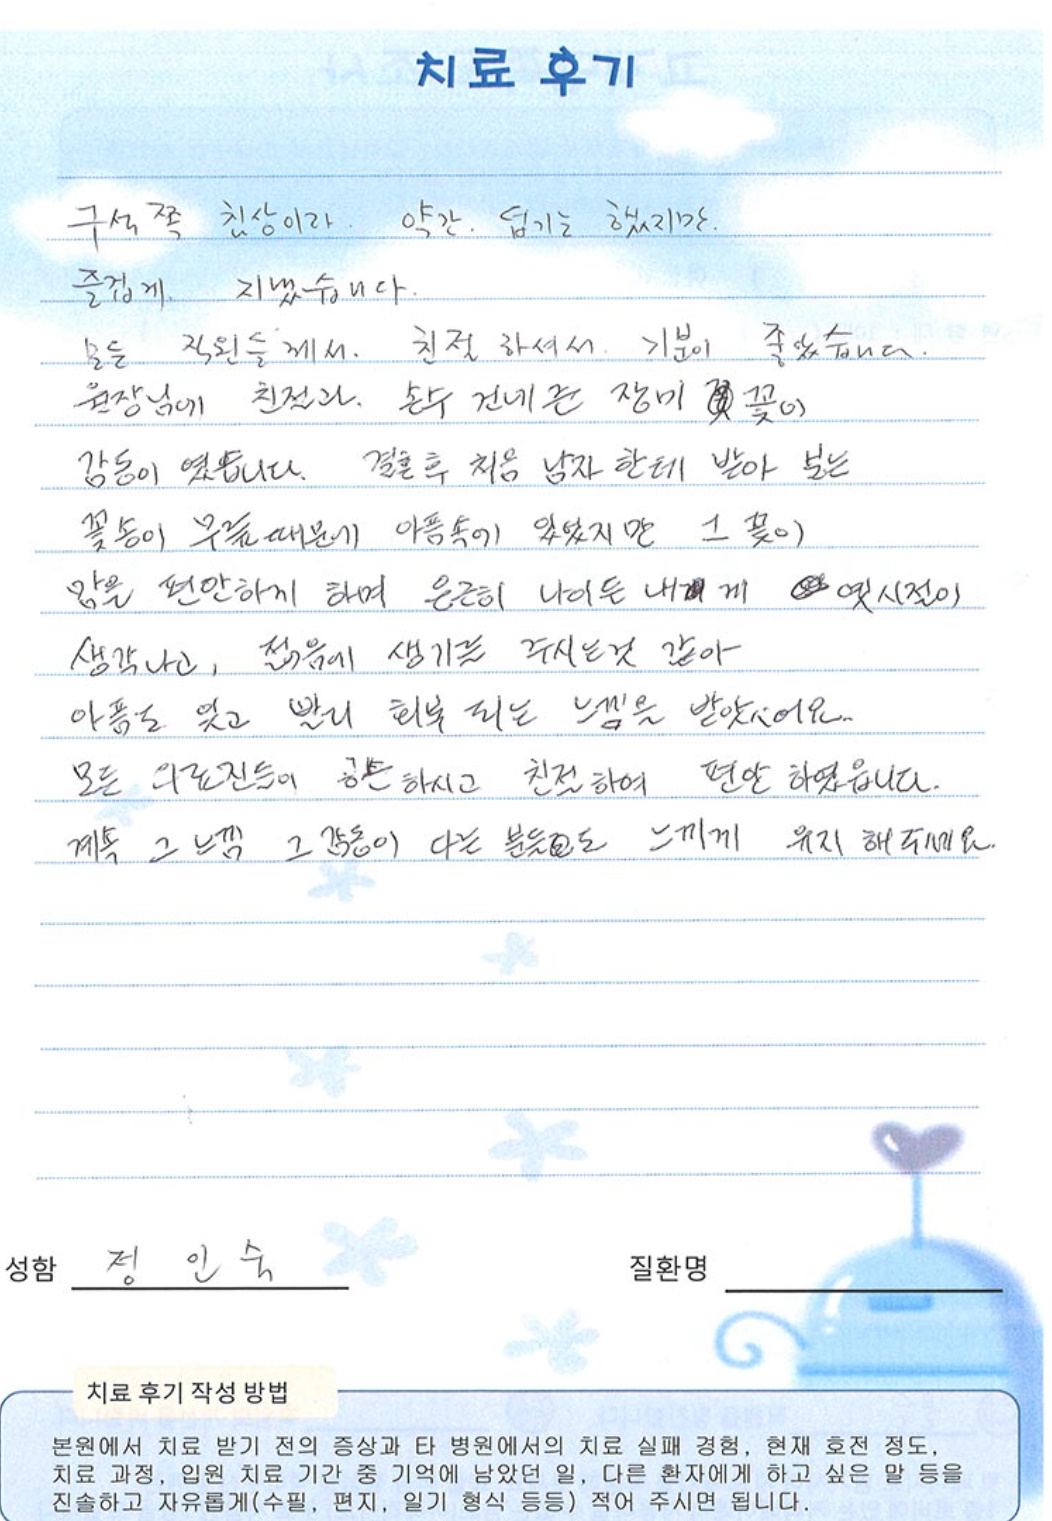 치료 후기
구석쪽 침상이라. 약간. 덥기는 했지만.
즐겁게. 지냈습니다.
모든 직원들께서. 친절 하셔서. 기분이 좋았습니다.
원장님에 친절과. 손수 건네준 장미 꽃이
감동이 였습니다. 결혼후 처음 남자 한테 받아 보는
꽃송이 무릎때문에 아픔속에 있었지만 그 꽃이
맘을 편안하게 하며 은근히 나이든 내게 옛시절이
생각나고, 젊음에 생기를 주시는것 같아
아픔도 잊고 빨리 회복 되는 느낌을 받았어요..
모든 의료진들이 하시고 친절하여 편안 하였읍니다.
계속 그 느낌 그 감동이 다른 분들도 느끼게 유지 해주세요.
성함 정 인 숙 질환명
치료 후기 작성 방법
본원에서 치료 받기 전의 증상과 타 병원에서의 치료 실패 경험, 현재 호전 정도,
치료 과정, 입원 치료 기간 중 기억에 남았던 일, 다른 환자에게 하고 싶은 말 등을
진솔하고 자유롭게(수필, 편지, 일기 형식 등등) 적어 주시면 됩니다.